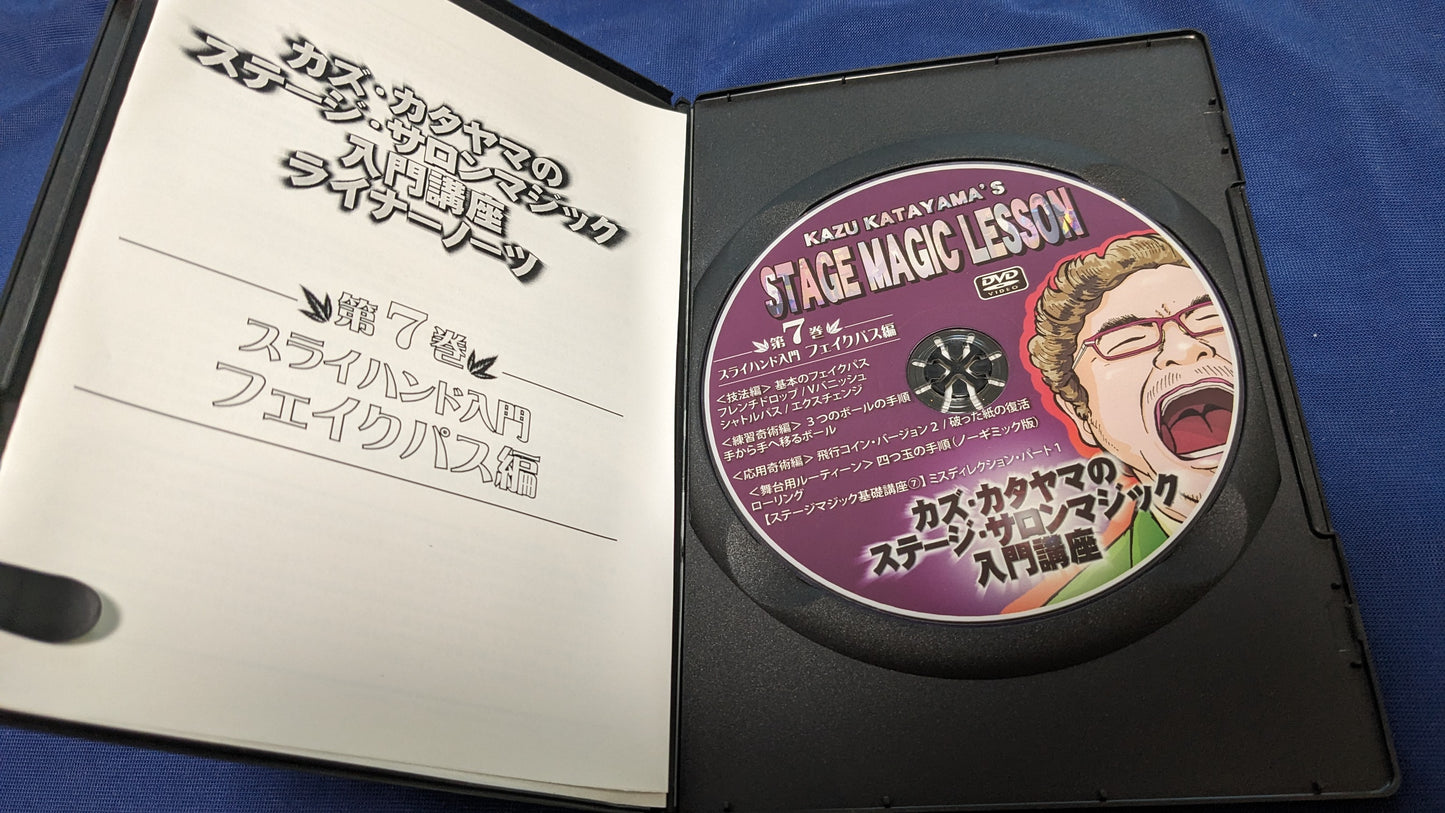 カズ・カタヤマの
ステージ・サロンマジック
入門講座
ライナーノーツ
第7巻
スライハンド入門
フェイクパス編
KAZU KATAYAMA'S
STAGE MAGIC LESSON
DVD
VIDEO
第7巻
スライハンド入門 フェイクパス編
＜技法編＞基本のフェイクパス
フレンチドロップ/Vバニッシュ
シャトルパス/エクスチェンジ
＜練習奇術編＞３つのボールの手順
手から手へ移るボール
＜応用奇術編＞飛行コイン・バージョン２/破った紙の復活
＜舞台用ルーティーン＞四つ玉の手順(ノーギミック版)
ローリング
【ステージマジック基礎講座⑦】ミスディレクション・パート１
カズ・カタヤマの
ステージ・サロンマジック
入門講座